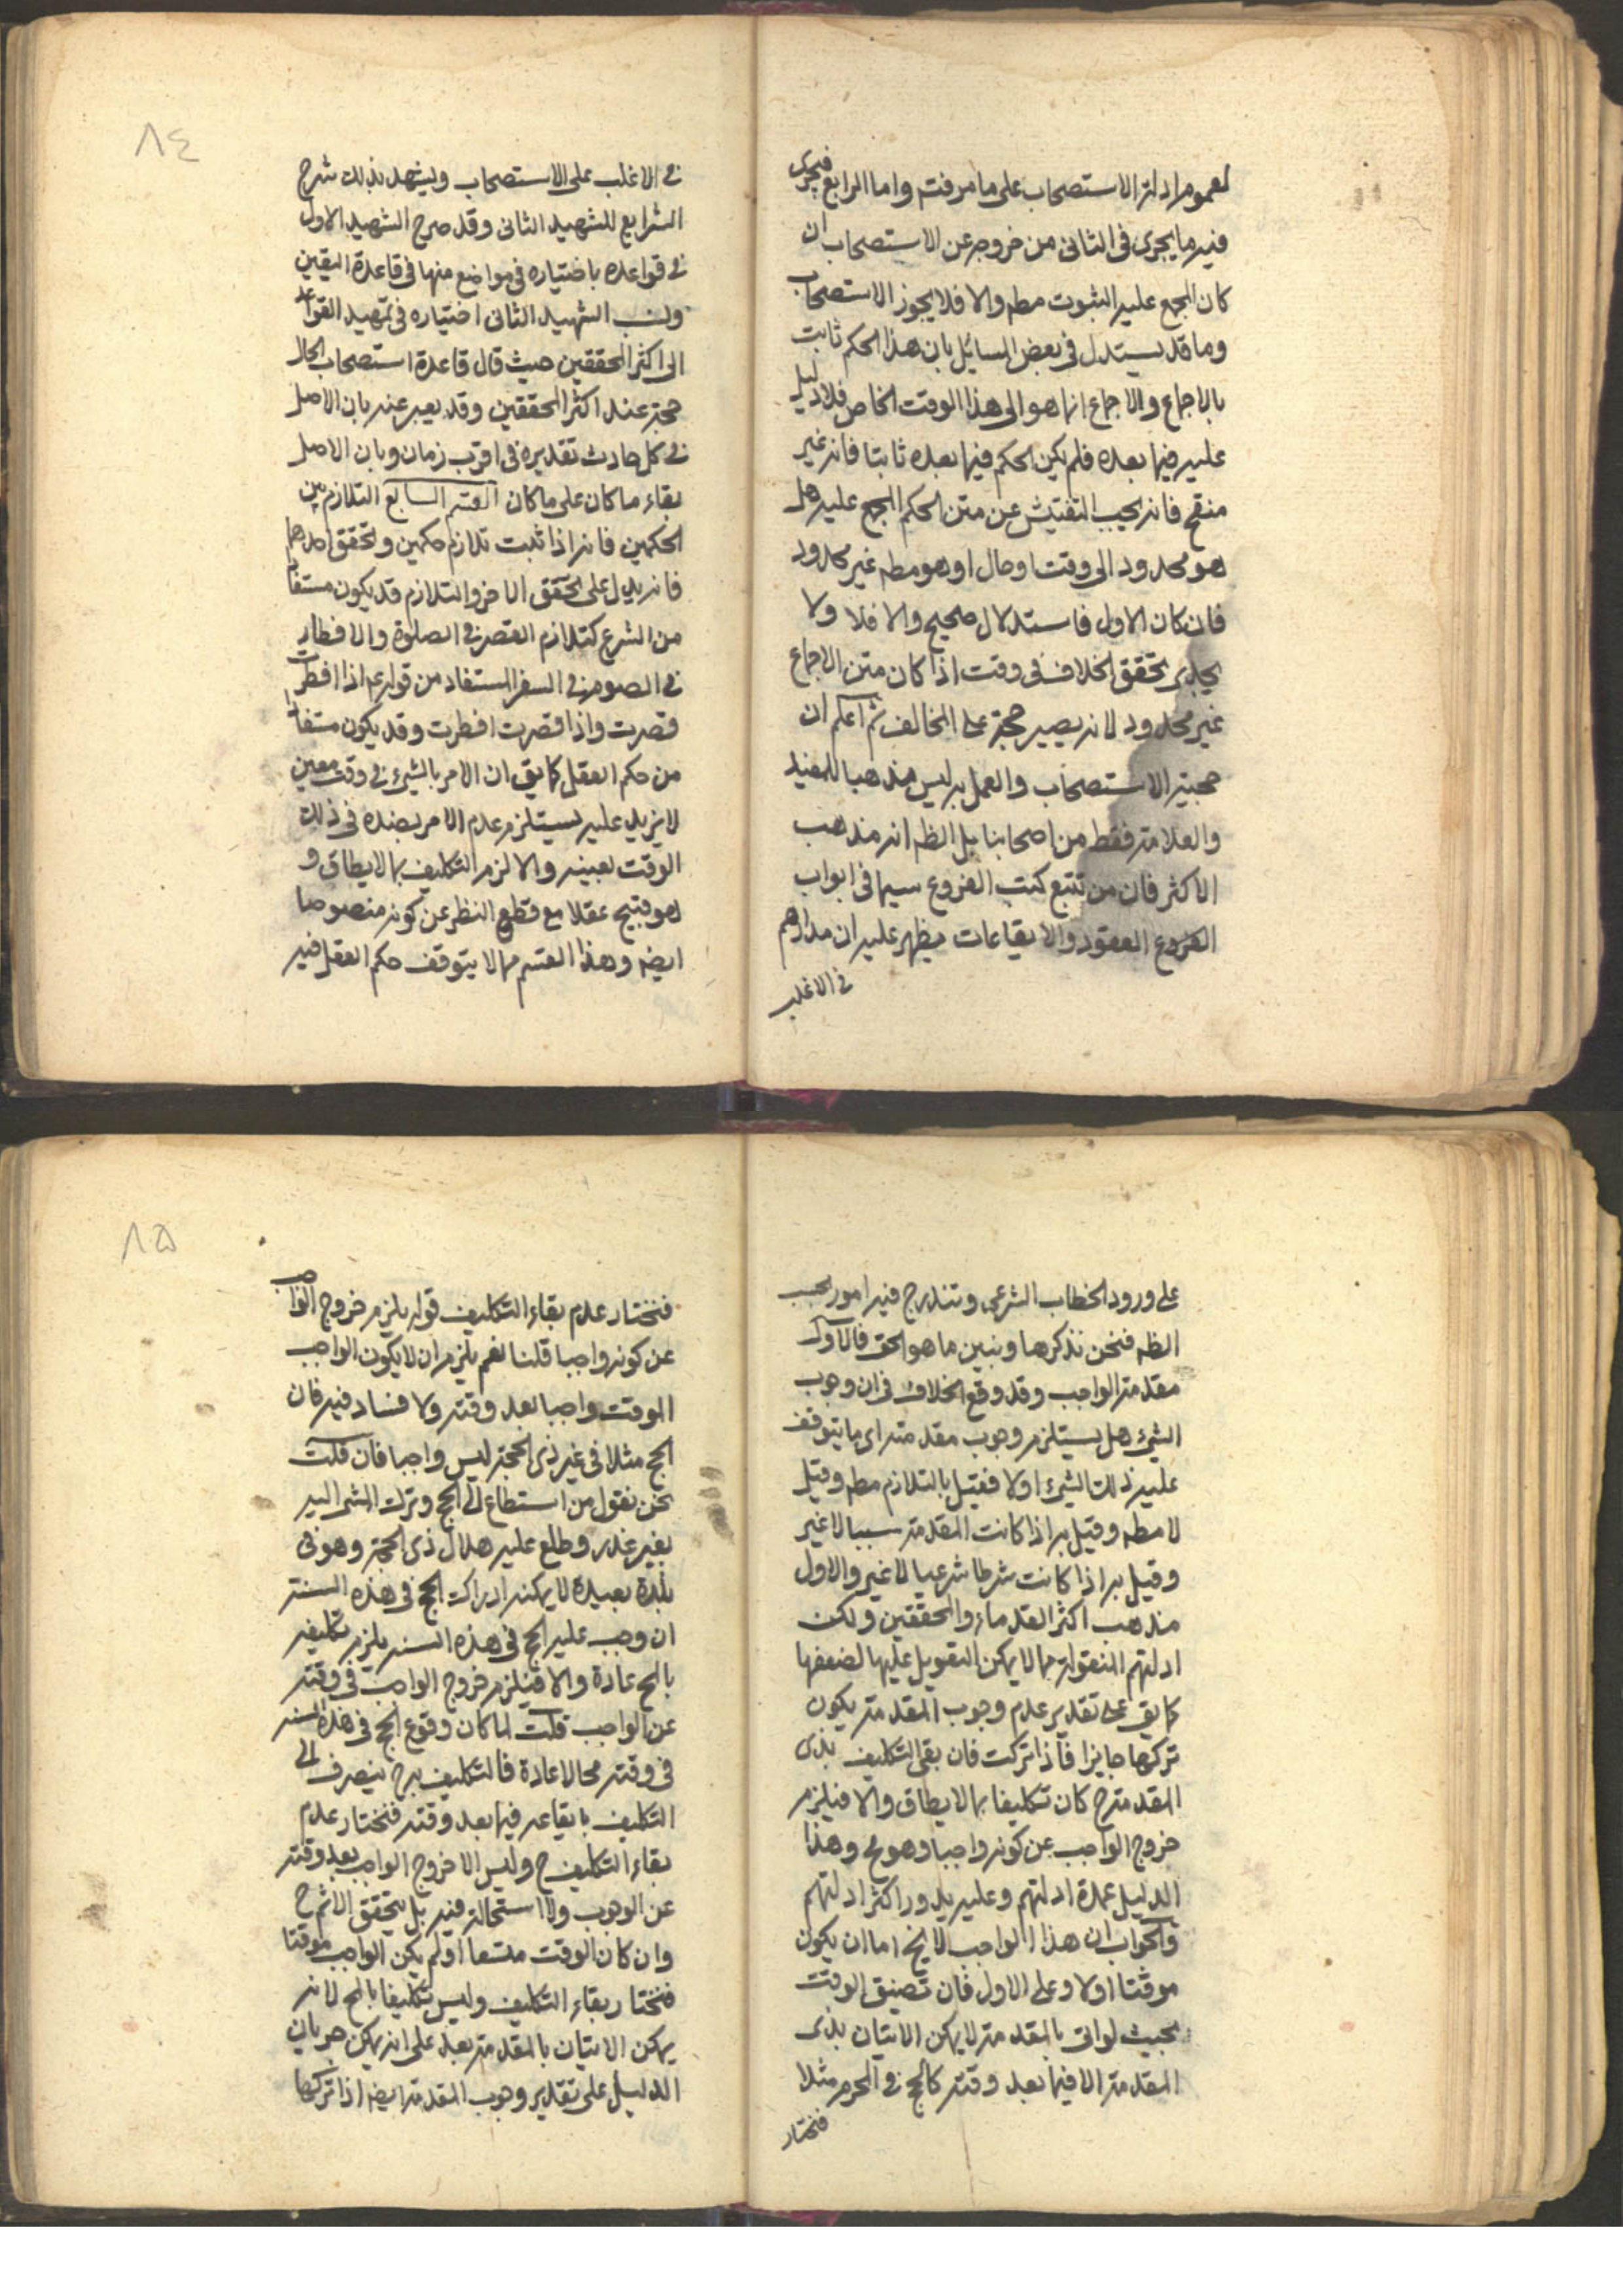 لعموم ادلة الاستصحاب على ما عرفت واما الرابع فيجرى
فيه ما يجرى فى الثانى من خروجه عن الاستصحاب ان
كان المجمع عليه الثبوت مطم والا فلا يجوز الاستصحاب
وما قد يستدل فى بعض المسائل بان هذا الحكم ثابت
بالاجماع والاجماع انما هو الى هذا الوقت الخاص فلا دليل
عليه فيما بعده فلم يكن الحكم فيما بعده ثابتا فانه غير
منقح فانه يجب التفتيش عن متن الحكم المجمع عليه هل
هو محدود الى وقت او حال او هو مطم غير محدود
فان كان الاول فاستدلال صحيح والا فلا ولا
يجدى تحقق الخلاف فى وقت اذا كان متن الاجماع
غير محدود لانه يصير حجة على المخالف ثم اعلم ان
حجية الاستصحاب والعمل به ليس مذهبا للمفيد
والعلامة فقط من اصحابنا بل الظم انه مذهب
الاكثر فان من تتبع كتب الفروع سيما فى ابواب
الفروع العقود والايقاعات يظهر عليه ان مدارهم
فى الاغلب
٨٤
فى الاغلب على الاستصحاب ويشهد بذلك شرح
الشرايع للشهيد الثانى وقد صرح الشهيد الاول
فى قواعده باختياره فى مواضع منها فى قاعدة اليقين
ونسب الشهيد الثانى اختياره فى تمهيد القواعد
الى اكثر المحققين حيث قال قاعدة استصحاب الحال
حجة عند اكثر المحققين وقد يعبر عنه بان الاصل
فى كل حادث تقديره فى اقرب زمان وبان الاصل
بقاء ما كان على ما كان القسم السابع التلازم بين
الحكمين فانه اذا ثبت تلازم حكمين وتحقق احدهما
فانه يدل على تحقق الاخر والتلازم قد يكون مستفادا
من الشرع كتلازم القصر فى الصلوة والافطار
فى الصوم فى السفر المستفاد من قوله ع اذا افطرت
قصرت واذا قصرت افطرت وقد يكون مستفادا
من حكم العقل كما يق ان الامر بالشئ فى وقت معين
لا يزيد عليه يستلزم عدم الامر بضده فى ذلك
الوقت بعينه والا لزم التكليف بما لا يطاق و
هو قبيح عقلا مع قطع النظر عن كونه منصوصا
ايضه وهذا القسم مما لا يتوقف حكم العقل فيه
على ورود الخطاب الشرعى وتندرج فيه امور بحسب
الظم فنحن نذكرها ونبين ما هو الحق فالاول
مقدمة الواجب وقد وقع الخلاف فى ان وجوب
الشئ هل يستلزم وجوب مقدمته اى ما يتوقف
عليه ذلك الشئ اولا فقيل بالتلازم مطم وقيل
لا مطم وقيل به اذا كانت المقدمة سببا لا غير
وقيل به اذا كانت شرطا شرعيا لا غير والاول
مذهب اكثر القدماء والمحققين ولكن
ادلتهم المنقولة مما لا يمكن التعويل عليها لضعفها
كما يق على تقدير عدم وجوب المقدمة يكون
تركها جايزا فاذا تركت فان بقى التكليف بذى
المقدمة ح كان تكليفا بما لا يطاق والا فيلزم
خروج الواجب عن كونه واجبا وهو مح وهذا
الدليل عمدة ادلتهم وعليه يدور اكثر ادلتهم
والجواب ان هذا الواجب لا يخ اما ان يكون
موقتا اولا وعلى الاول فان تضيق الوقت
بحيث لو اتى بالمقدمة لا يمكن الاتيان بذى
المقدمة الا فيما بعد وقته كالحج فى المحرم مثلا
فنختار
٨٥
فنختار عدم بقاء التكليف قوله يلزم خروج الواجب
عن كونه واجبا قلنا نعم يلزم ان لا يكون الواجب
الموقت واجبا بعد وقته ولا فساد فيه فان
الحج مثلا فى غير ذى الحجة ليس واجبا فان قلت
نحن نقول من استطاع الى الحج وترك المشى اليه
بغير عذر وطلع عليه هلال ذى الحجة وهو فى
بلدة بعيدة لا يمكنه ادراك الحج فى هذه السنة
ان وجب عليه الحج فى هذه السنة يلزم تكليفه
بالمح عادة والا فيلزم خروج الواجب فى وقته
عن الواجب قلت لما كان وقوع الحج فى هذه السنة
فى وقته محالا عادة فالتكليف به ح ينصرف الى
التكليف بايقاعه فيما بعد وقته فنختار عدم
بقاء التكليف ح وليس الا خروج الواجب بعد وقته
عن الوجوب ولا استحالة فيه بل يتحقق الاثم ح
وان كان الوقت متسعا او لم يكن الواجب موقتا
فنختار بقاء التكليف وليس تكليفا بالمح لانه
يمكن الاتيان بالمقدمة بعد على انه يمكن جريان
الدليل على تقدير وجوب المقدمة ايضه اذا تركها